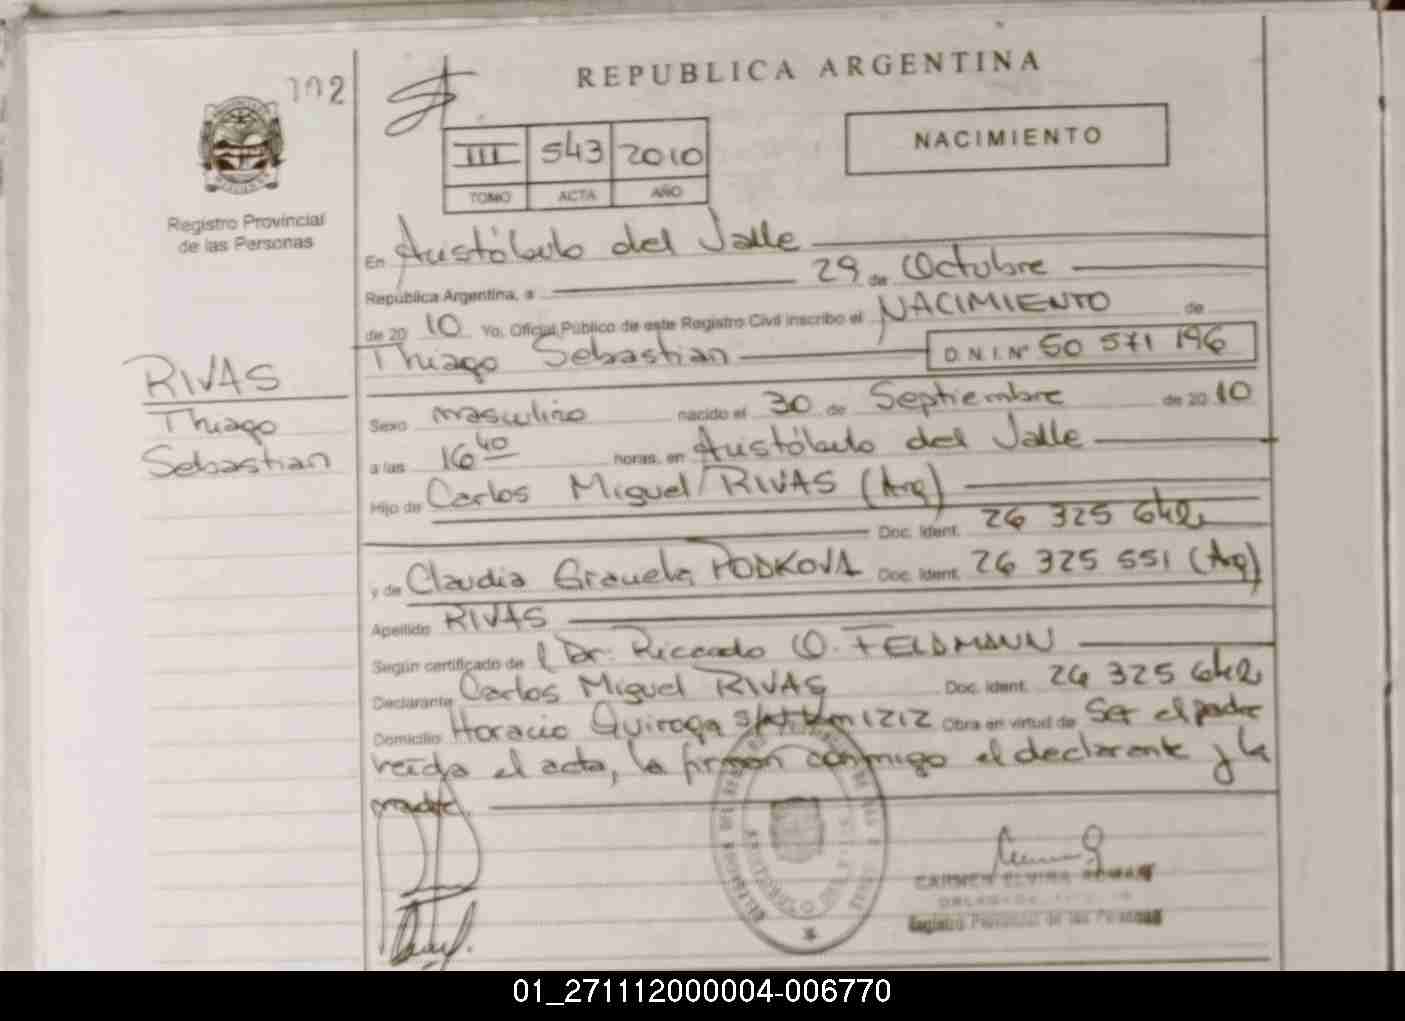 REPUBLICA ARGENTINA
102
NACIMIENTO
III 543 2010
TOMO ACTA AÑO
Registro Provincial
de las Personas
En Aristóbulo del Valle
República Argentina, a 29 de Octubre
de 20 10 Yo, Oficial Público de este Registro Civil inscribo el NACIMIENTO de
Thiago Sebastian D.N.I. Nº 50 571 196
RIVAS
Thiago
Sebastian
Sexo masculino nacido el 30 de Septiembre de 20 10
a las 16 40 horas, en Aristóbulo del Valle
Hijo de Carlos Miguel RIVAS (Arg)
Doc. Ident. 26 325 642
y de Claudia Graciela PODKOVA Doc. Ident. 26 325 551 (Arg)
Apellido RIVAS
Según certificado de l Dr. Ricardo O. FELDMANN
Declarante Carlos Miguel RIVAS Doc. Ident. 26 325 642
Domicilio Horacio Quiroga 1212 Obra en virtud de Ser el padre
leída el acta, la firman conmigo el declarante y la
madre.
CARMEN ELVIRA
Registro Provincial de las Personas
01_271112000004-006770